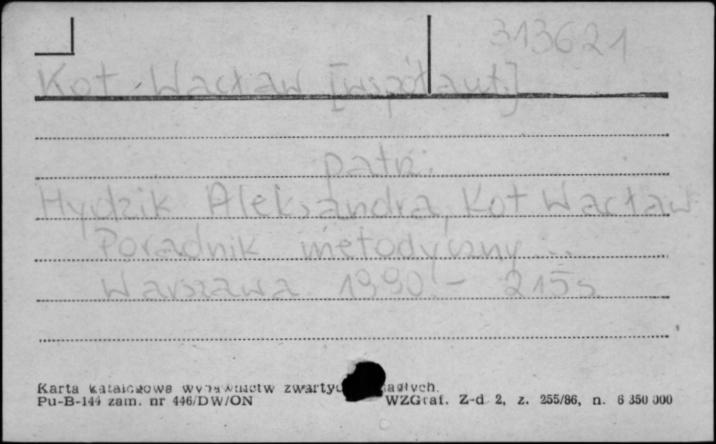 313621
Kot Wacław [współaut.]
patrz:
Hydzik Aleksandra, Kot Wacław
Poradnik metodyczny...
Warszawa 1990.- 215 s
Karta katalogowa wydawnictw zwartych ciągłych.
Pu-B-144 zam. nr 446/DW/ON WZGraf. Z-d 2, z. 255/86, n. 6 350 000